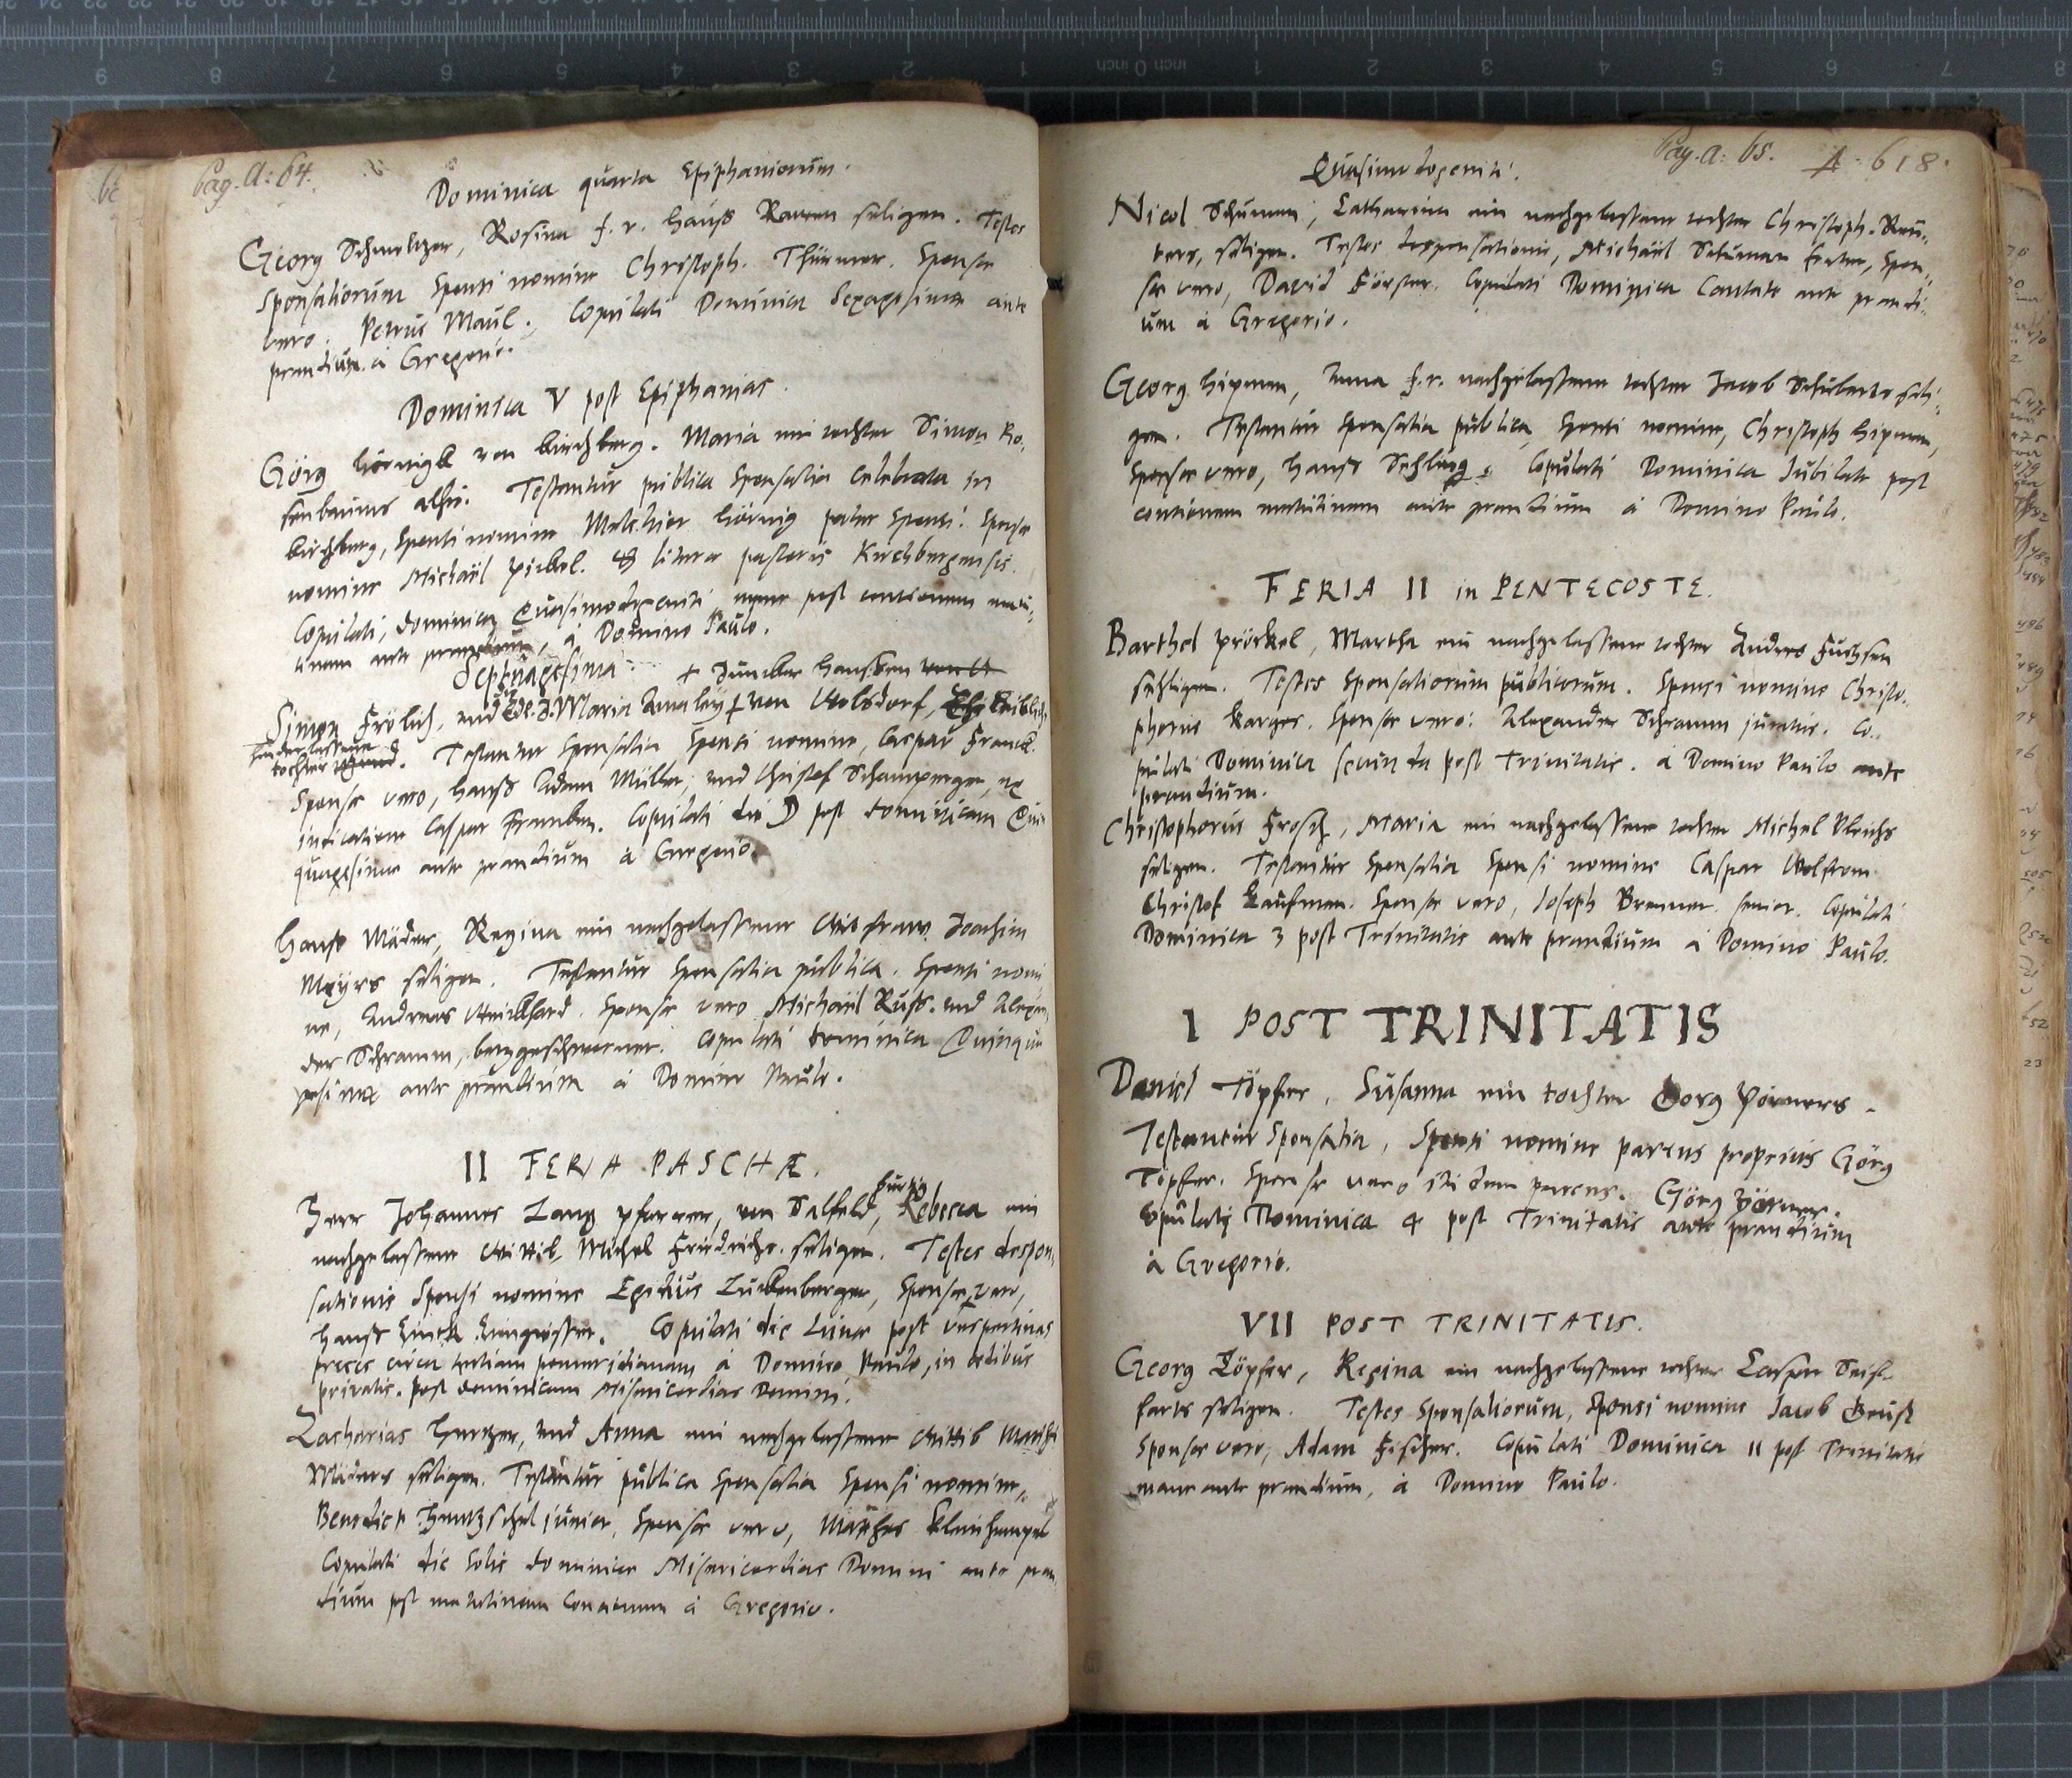 Pag. A: 64.
Dominica quarta Epiphaniorum.
Georg Schmeltzer, Rosina f. r. Hanß Rauen seligen. Testes
Sponsaliorum Sponsi nomine Christoph. Thürmer. Sponsæ
vero. Petrus Maul. Copulati Dominica Sexagesima ante
prandium à Gregorio.
Dominica V post Epiphanias.
Görg Hörnigk von Kirchberg. Maria ein tochter Simon Ro-
senbaums alhie. Testantur publica Sponsalia celebrata in
Kirchberg, Sponsi nomine Melchior Hörnig pater Sponsi. Sponsæ
nomine Michäel Pickel. & literæ pastoris Kirchbergensis.
Copulati, dominica Quasimodogeniti mane post contionem matu-
tinam ante prandium, à Domino Paulo.
Septuagesima
+ Juncker Hanßen
Simon Frölich, und Edl. J. Maria Amaley + von Wolsdorf,
hinderlassene
tochter. Testantur Sponsalia Sponsi nomine, Caspar Franck.
Sponsæ vero, Hanß Adam Müller, und Christof Schamperger, ex
indicatione Caspar Francken. Copulati die ☽ post dominicam Quin-
quagesimæ ante prandium à Gregorio.
Hanß Mäder, Regina ein nachgelassene Witfraw Joachim
Meyers seligen. Testantur Sponsalia publica. Sponsi nomi-
ne, Andreas Weickhard. Sponsæ vero Michäel Ruß. und Alexan-
der Schramm, berggeschworner. Copulati dominica Quinqua-
gesimæ ante prandium à Domino Paulo.
II FERIA PASCHÆ.
bürtig
Herr Johannes Lang pfarrer, von Salfeld, Rebecca ein
nachgelassene Wittib Michel Friedrichs seligen. Testes despon-
sationis Sponsi nomine Egidius Luckenberger, Sponsæ vero,
Hanß Zinck Zingisser. Copulati die Lunæ post vespertinas
preces circa tertiam pomeridianam à Domino Paulo, in ædibus
privatis. post dominicam Misericordias Domini.
Zacharias Hertzer, und Anna ein nachgelassene Wittib Matthes
Mäders seligen. Testantur publica Sponsalia Sponsi nomine,
Benedict Hentzschel junior, Sponsæ vero, Matthes Kleinhempel
Copulati die Solis dominica Misericordias Domini ante pran-
dium post matutinam Contionem à Gregorio.
Pag. A: 65.
A. 618.
Quasimodogeniti.
Nicol Schuman, Catharina ein nachgelassene tochter Christoph. Reu-
ters, seligen. Testes desponsationis, Michäel Schuman frater, Spon-
sæ vero, David Förster. Copulati Dominica Cantate ante prandi-
um à Gregorio.
Georg Hipman, Anna f. r. nachgelassene tochter Jacob Schuberts seli-
gen. Testantur Sponsalia publica, Sponsi nomine, Christoph Hipman,
Sponsæ vero, Hanß Schlung. Copulati Dominica Jubilate post
contionem matutinam ante prandium à Domino Paulo.
FERIA II in PENTECOSTE.
Barthel Pröckel, Martha ein nachgelassene tochter Andres Fuchsen
sehligen. Testes Sponsaliorum publicorum. Sponsi nomine Christo-
phorus Karges. Sponsæ vero: Alexander Schramm juratus. Co-
pulati Dominica secunda post Trinitatis. à Domino Paulo ante
prandium.
Christophorus Frosch, Maria ein nachgelassene tochter Michel Ulrichs
seligen. Testantur Sponsalia Sponsi nomine Caspar Wolfrom.
Christof Kaufman. Sponsæ vero, Joseph Brenner. senior. Copulati
Dominica 3 post Trinitatis ante prandium à Domino Paulo.
I POST TRINITATIS
Daniel Töpfer, Susanna ein tochter Georg Pörners.
Testantur Sponsalia, Sponsi nomine parens proprius Görg
Töpfer. Sponsæ vero itidem parens. Görg Pörner.
Copulati Dominica 4 post Trinitatis ante prandium
à Gregorio.
VII POST TRINITATIS.
Georg Töpfer, Regina ein nachgelassene tochter Caspar Seif-
farts seligen. Testes Sponsaliorum, Sponsi nomine Jacob Beust
Sponsæ vero, Adam Fischer. Copulati Dominica 11 post Trinitatis
mane ante prandium, à Domino Paulo.